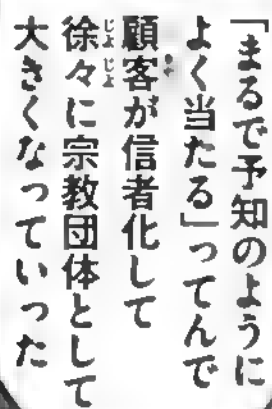 「まるで予知のように
よく当たる」ってんで
顧客が信者化して
徐々に宗教団体として
大きくなっていった